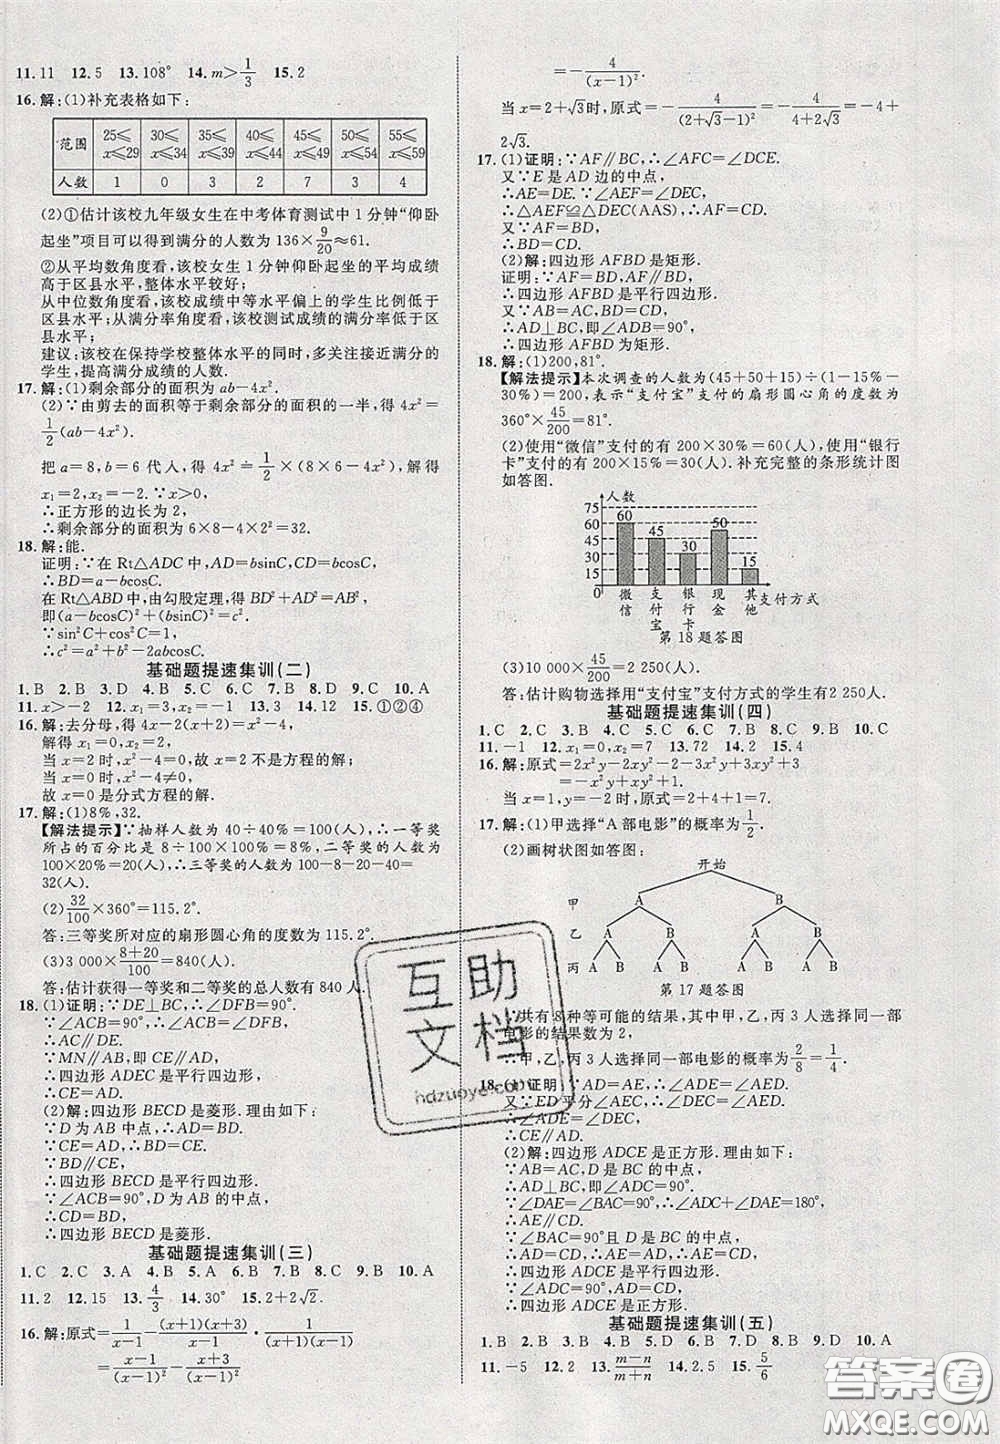 11. 11 12. 5 13. 108° 14. m>1/3 15. 2
16. 解:(1)补充表格如下:
范围 25≤x≤29 30≤x≤34 35≤x≤39 40≤x≤44 45≤x≤49 50≤x≤54 55≤x≤59
人数 1 0 3 2 7 3 4
(2)①估计该校九年级女生在中考体育测试中1分钟“仰卧
起坐”项目可以得到满分的人数为136×9/20≈61.
②从平均数角度看,该校女生1分钟仰卧起坐的平均成绩
高于区县水平,整体水平较好;
从中位数角度看,该校成绩中等水平偏上的学生比例低于
区县水平;从满分率角度看,该校测试成绩的满分率高于区
县水平;
建议:该校在保持学校整体水平的同时,多关注接近满分的
学生,提高满分成绩的人数.
17. 解:(1)剩余部分的面积为ab-4x².
(2)∵由剪去的面积等于剩余部分的面积的一半,得4x²=
1/2(ab-4x²).
把a=8,b=6代入,得4x²=1/2×(8×6-4x²),解得
x₁=2,x₂=-2.∵x>0,
∴正方形的边长为2,
∴剩余部分的面积为6×8-4×2²=32.
18. 解:能.
证明:∵在Rt△ADC中,AD=bsinC,CD=bcosC,
∴BD=a-bcosC.
在Rt△ABD中,由勾股定理,得BD²+AD²=AB²,
即(a-bcosC)²+(bsinC)²=c².
∵sin²C+cos²C=1,
∴c²=a²+b²-2abcosC.
基础题提速集训(二)
1. B 2. B 3. D 4. B 5. C 6. B 7. D 8. C 9. C 10. A
11. x>-2 12. x₁=3,x₂=-1 13. 3 14. 12 15. ①②④
16. 解:去分母,得4x-2(x+2)=x²-4,
解得x₁=0,x₂=2;
当x=2时,x²-4=0;
当x=0时,x²-4≠0,
故x=0是分式方程的解.
17. 解:(1)8%,32.
【解法提示】∵抽样人数为40÷40%=100(人),∴一等奖
所占的百分比是8÷100×100%=8%,二等奖的人数为
100×20%=20(人),∴三等奖的人数为100-8-20-40=
32(人).
(2)32/100×360°=115.2°.
答:三等奖所对应的扇形圆心角的度数为115.2°.
(3)3 000×(8+20)/100=840(人).
答:估计获得一等奖和二等奖的总人数有840人.
18. (1)证明:∵DE⊥BC,∴∠DFB=90°.
∵∠ACB=90°,∴∠ACB=∠DFB,
∴AC∥DE.
∵MN∥AB,即CE∥AD,
∴四边形ADEC是平行四边形,
∴CE=AD.
(2)解:四边形BECD是菱形.理由如下:
∵D为AB中点,∴AD=BD.
∵CE=AD,∴BD=CE.
∵BD∥CE,
∴四边形BECD是平行四边形.
∵∠ACB=90°,D为AB的中点,
∴CD=BD,
∴四边形BECD是菱形.
基础题提速集训(三)
1. C 2. C 3. A 4. B 5. A 6. B 7. A 8. B 9. C 10. A
11. 2 12. 15 13. 4/3 14. 30° 15. 2+2√2.
16. 解:原式=1/(x-1)-(x+1)(x+3)/(x-1)·1/((x+1)(x-1))
=(x-1)/(x-1)²-(x+3)/(x-1)²
=-4/(x-1)².
当x=2+√3时,原式=-4/(2+√3-1)²=-4/(4+2√3)=-4+
2√3.
17. (1)证明:∵AF∥BC,∴∠AFC=∠DCE.
又∵E是AD边的中点,
∴AE=DE.∵∠AEF=∠DEC,
∴△AEF≌△DEC(AAS),∴AF=CD.
又∵AF=BD,
∴BD=CD.
(2)解:四边形AFBD是矩形.
证明:∵AF=BD,AF∥BD,
∴四边形AFBD是平行四边形.
又∵AB=AC,BD=CD,
∴AD⊥BC,即∠ADB=90°,
∴四边形AFBD为矩形.
18. 解:(1)200,81°.
【解法提示】本次调查的人数为(45+50+15)÷(1-15%-
30%)=200,表示“支付宝”支付的扇形圆心角的度数为
360°×45/200=81°.
(2)使用“微信”支付的有200×30%=60(人),使用“银行
卡”支付的有200×15%=30(人).补充完整的条形统计图
如答图.
人数
75
60
45
30
15
0
60 45 30 50 15
微信 支付宝 银行卡 现金 其他 支付方式
第18题答图
(3)10 000×45/200=2 250(人).
答:估计购物选择用“支付宝”支付方式的学生有2 250人.
基础题提速集训(四)
1. C 2. C 3. A 4. C 5. C 6. C 7. B 8. B 9. C 10. C
11. -1 12. x₁=0,x₂=7 13. 72 14. 2 15. 4
16. 解:原式=2x²y-2xy²-2-3x²y+3xy+3xy²+3
=-x²y+xy²+3xy+1.
当x=1,y=-2时,原式=2+4-6+1=1.
17. 解:(1)甲选择“A部电影”的概率为1/2.
(2)画树状图如答图:
开始
甲 A B
乙 A B A B
丙 A B A B A B A B
第17题答图
∵共有8种等可能的结果,其中甲,乙,丙3人选择同一部
电影的结果数为2,
∴甲,乙,丙3人选择同一部电影的概率为2/8=1/4.
18. (1)证明:∵AD=AE,∴∠AED=∠ADE.
又∵ED平分∠AEC,∴∠AED=∠DEC,
∴∠ADE=∠DEC,
∴CE∥AD.
(2)解:四边形ADCE是正方形.理由如下:
∵AB=AC,D是BC的中点,
∴∠DAE=∠BAC=90°,∴∠ADC+∠DAE=180°,
∵∠BAC=90°且D是BC的中点,
∴四边形ADCE是矩形.
∵AD=AE,
∴四边形ADCE是正方形.
基础题提速集训(五)
1. B 2. B 3. B 4. C 5. C 6. A 7. D 8. B 9. D 10. A
11. -5 12. 2 13. (m-n)/(m+n) 14. 2.5 15. 5/6
互助
文档
hdzuoye.com
答案圈
MXQE.COM